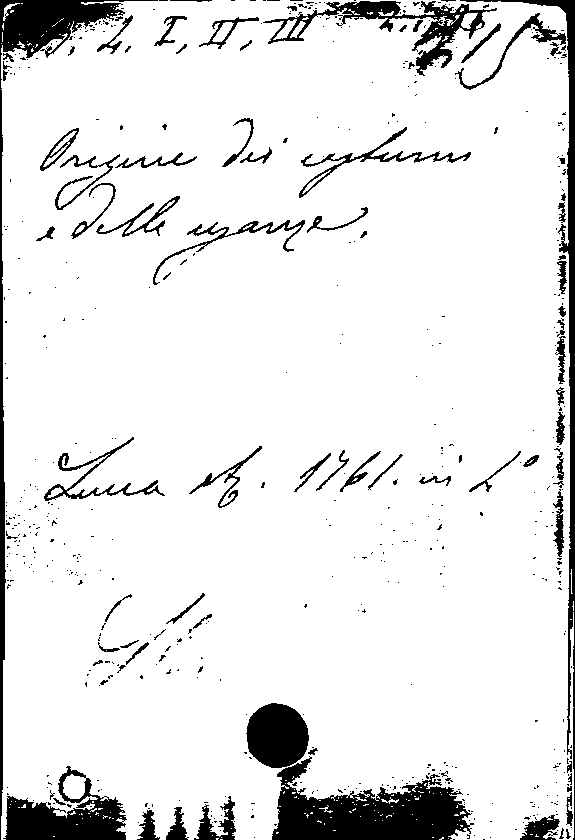 4. I, II, III 15
Origine dei costumi
e delle usanze.
Lucca 1761. in 4°